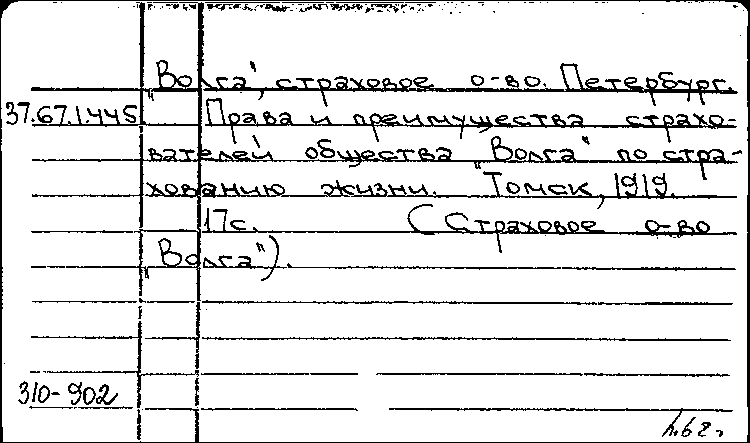 „Волга", страховое о-во. Петербург.
37.67.1.445. Права и преимущества страхо-
вателей общества „Волга" по стра-
хованию жизни. Томск, 1919.
17с. (Страховое о-во
„Волга").
310-902